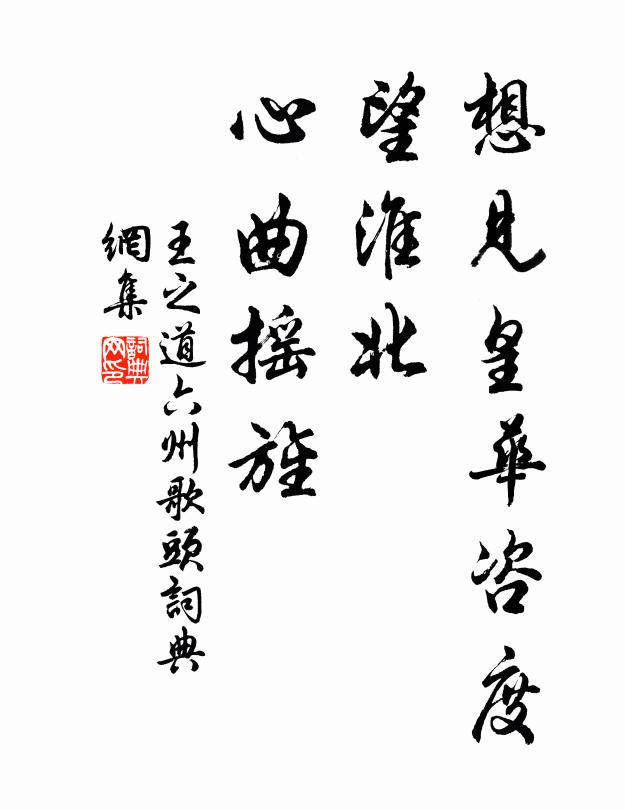 想見皇華咨度
望淮北
心曲摇旌
王之道六州歌頭詞典
網集
詞典网印